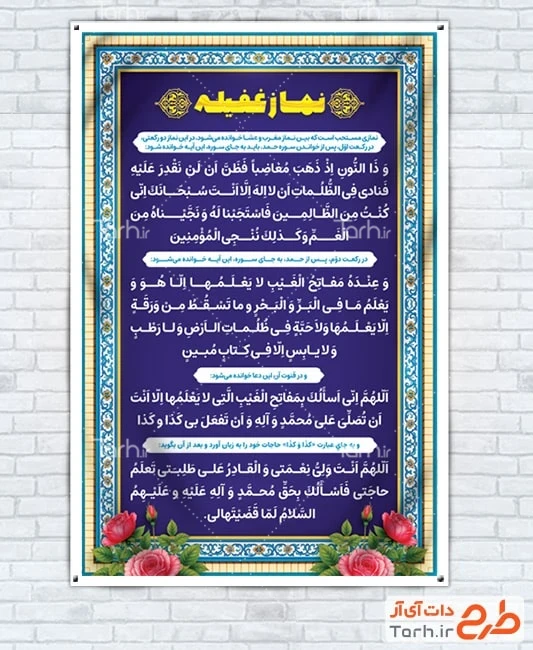 نماز غفیله
نمازی مستحب است که بین نماز مغرب و عشا خوانده می‌شود، در این نماز دو رکعتی،
در رکعت اوّل، پس از خواندن سوره حمد، باید به جای سوره، این آیه خوانده شود:
وَ ذَا النُّونِ إِذْ ذَهَبَ مُغَاضِباً فَظَنَّ أَنْ لَنْ نَقْدِرَ عَلَیْهِ
فَنَادَی فِی الظُّلُمَاتِ أَنْ لَا إِلَهَ إِلَّا أَنْتَ سُبْحَانَکَ إِنِّی
کُنْتُ مِنَ الظَّالِمِینَ فَاسْتَجَبْنَا لَهُ وَ نَجَّیْنَاهُ مِنَ
الْغَمِّ وَ کَذَلِکَ نُنْجِی الْمُؤْمِنِینَ
در رکعت دوّم، پس از حمد، به جای سوره، این آیه خوانده می‌شود:
وَ عِنْدَهُ مَفَاتِحُ الْغَیْبِ لَا یَعْلَمُهَا إِلَّا هُوَ وَ
یَعْلَمُ مَا فِی الْبَرِّ وَ الْبَحْرِ وَ مَا تَسْقُطُ مِنْ وَرَقَةٍ
إِلَّا یَعْلَمُهَا وَ لَا حَبَّةٍ فِی ظُلُمَاتِ الْأَرْضِ وَ لَا رَطْبٍ
وَ لَا یَابِسٍ إِلَّا فِی کِتَابٍ مُبِینٍ
و در قنوت آن این دعا خوانده می‌شود:
اَللّهُمَّ اِنّی اَسأَلُکَ بِمَفاتِحِ الْغَیْبِ الَّتی لا یَعْلَمُها اِلّا اَنْتَ
اَنْ تُصَلِّیَ عَلی مُحَمَّدٍ وَ آلِهِ وَ اَنْ تَفْعَلَ بی کَذا وَ کَذا
و به جای عبارت «کذا و کذا» حاجات خود را به زبان آورد و بعد از آن بگوید:
اَللّهُمَّ اَنْتَ وَلِیُّ نِعْمَتی وَ الْقادِرُ عَلی طَلِبَتی تَعْلَمُ
حاجَتی فَاَسْأَلُکَ بِحَقِّ مُحَمَّدٍ وَ آلِهِ عَلَیْهِ وَ عَلَیْهِمُ
السَّلامُ لَمّا قَضَیْتَهالی.
طرح دات آی آر
Tarh.ir